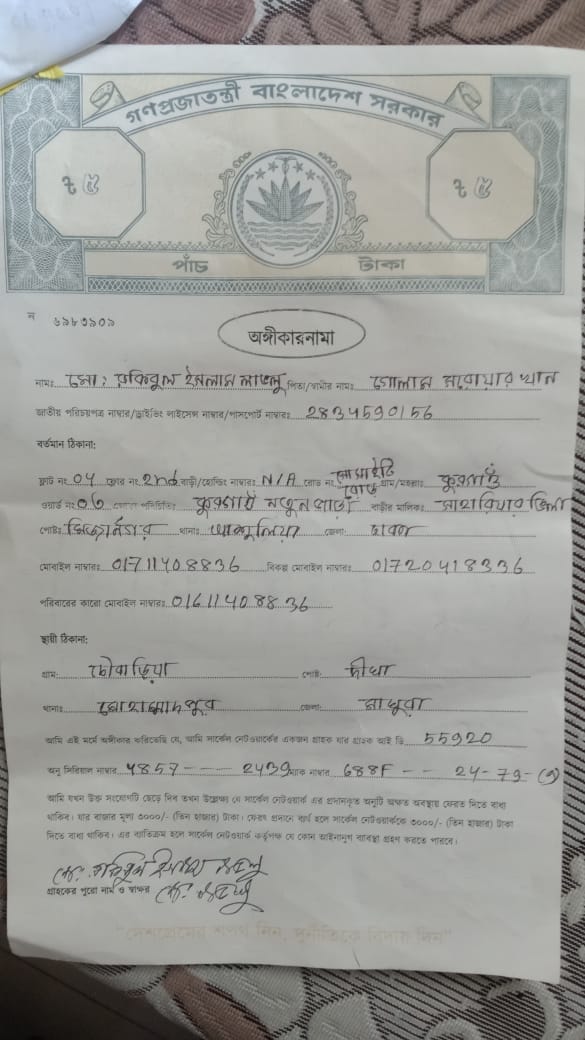 গণপ্রজাতন্ত্রী বাংলাদেশ সরকার
৳ ৫ ৳ ৫
পাঁচ টাকা
ন ৬৯৮৩৯০৯
অঙ্গীকারনামা
নামঃ মোঃ রকিবুল ইসলাম লাভলু পিতা/স্বামীর নামঃ গোলাম সরোয়ার খান
জাতীয় পরিচয়পত্র নাম্বার/ড্রাইভিং লাইসেন্স নাম্বার/পাসপোর্ট নাম্বারঃ 2834590156
বর্তমান ঠিকানা:
ফ্লাট নং 04 ফ্লোর নং 2nd বাড়ী/হোল্ডিং নাম্বারঃ N/A রোড নং সোসাইটি রোড গ্রাম/মহল্লাঃ কুরগাঁও
ওয়ার্ড নং 06 কুরগাঁও নতুন পাড়া বাড়ীর মালিকঃ
পোষ্টঃ থানাঃ আশুলিয়া জেলাঃ ঢাকা
মোবাইল নাম্বারঃ 01711408836 বিকল্প মোবাইল নাম্বারঃ 01720418336
পরিবারের কারো মোবাইল নাম্বারঃ 01611408836
স্থায়ী ঠিকানা:
গ্রামঃ চৌবাড়িয়া পোষ্টঃ দীঘা
থানাঃ মোহাম্মাদপুর জেলাঃ মাগুরা
আমি এই মর্মে অঙ্গীকার করিতেছি যে, আমি সার্কেল নেটওয়ার্কের একজন গ্রাহক যার গ্রাহক আই ডি 55920
অনু সিরিয়াল নাম্বার 4857 --- 2439 ম্যাক নাম্বার 688F -- 24-79-
আমি যখন উক্ত সংযোগটি ছেড়ে দিব তখন উল্লেখ্য যে সার্কেল নেটওয়ার্ক এর প্রদানকৃত অনুটি অক্ষত অবস্থায় ফেরত দিতে বাধ্য
থাকিব। যার বাজার মূল্য ৩০০০/- (তিন হাজার) টাকা। ফেরৎ প্রদানে ব্যর্থ হলে সার্কেল নেটওয়ার্ককে ৩০০০/- (তিন হাজার) টাকা
দিতে বাধ্য থাকিব। এর ব্যতিক্রম হলে সার্কেল নেটওয়ার্ক কর্তৃপক্ষ যে কোন আইনানুগ ব্যবস্থা গ্রহণ করতে পারবে।
মোঃ রকিবুল ইসলাম লাভলু
গ্রাহকের পুরো নাম ও স্বাক্ষর মোঃ লাভলু
"দেশপ্রেমের শপথ নিন, দুর্নীতিকে বিদায় দিন"